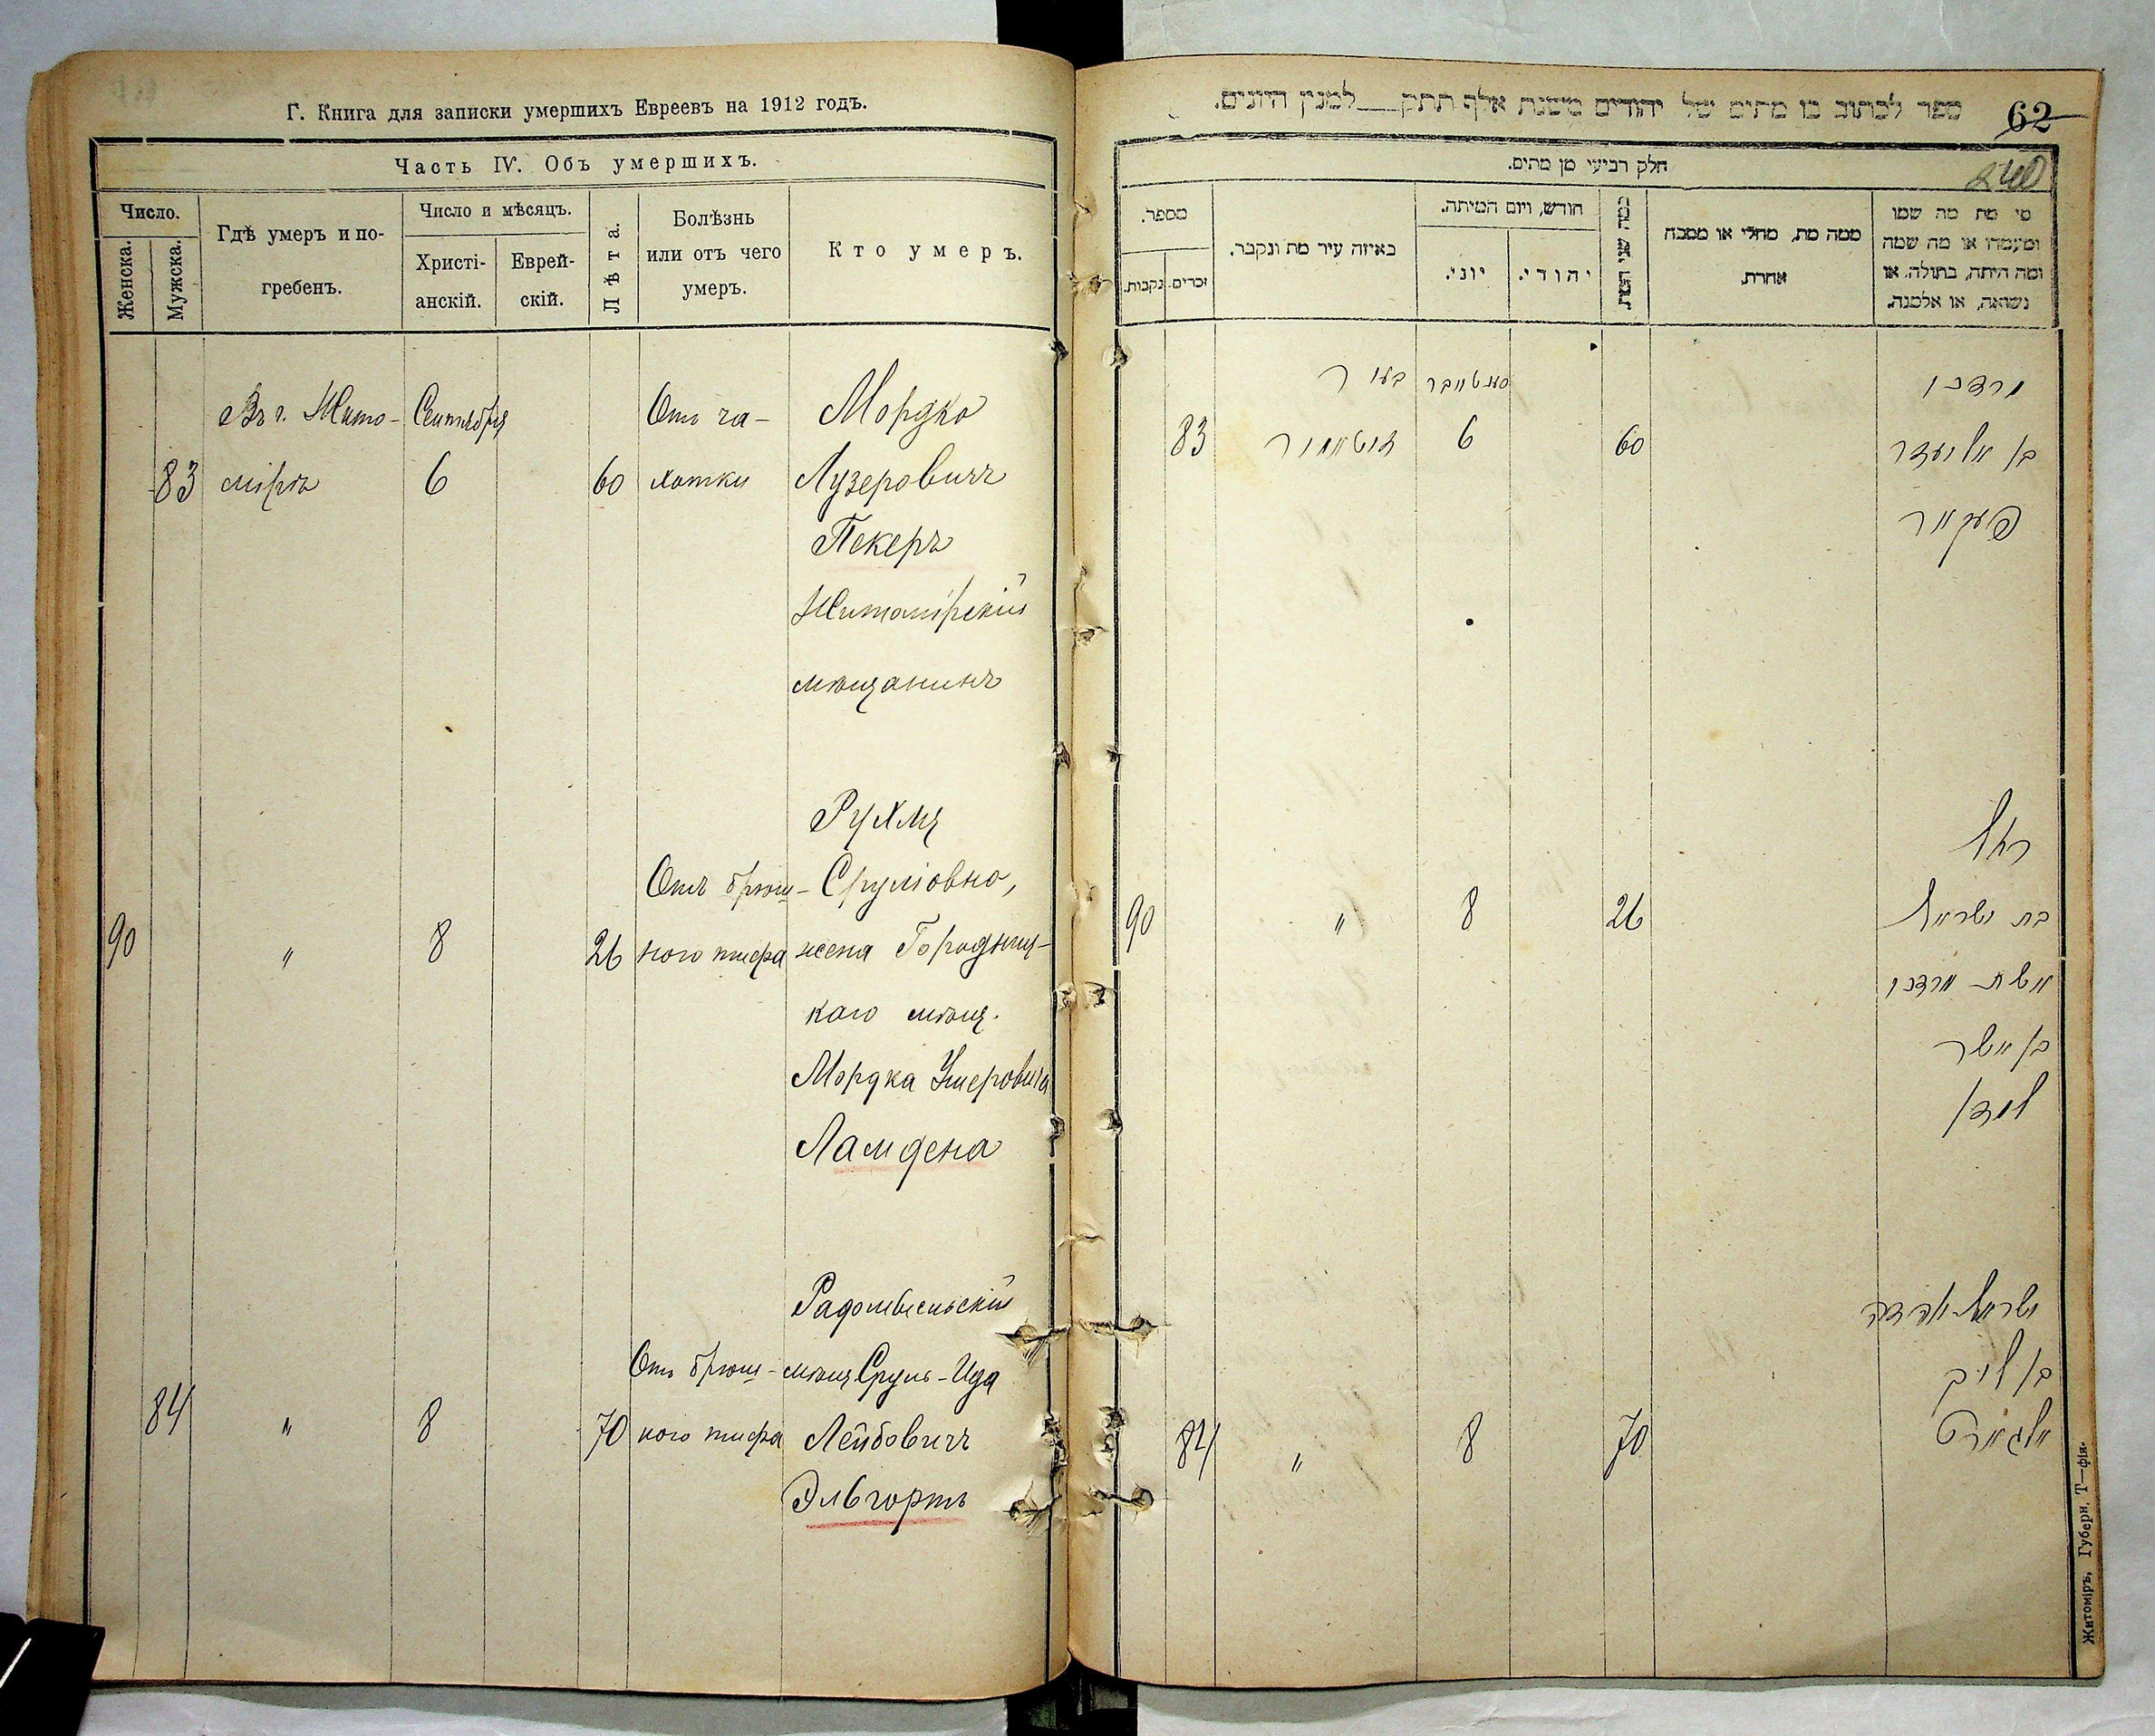 Г. Книга для записки умершихъ Евреевъ на 1912 годъ.
Часть IV. Объ умершихъ.
Число.
Женска.
Мужска.
Гдѣ умеръ и по-
гребенъ.
Число и мѣсяцъ.
Христі-
анскій.
Еврей-
скій.
Лѣта.
Болѣзнь
или отъ чего
умеръ.
Кто умеръ.
Въ г. Жито-
Сентября
Отъ ча-
Мордко
83
мірѣ
6
60
хотки
Лузеровичъ
Пекеръ
Житомірскій
мѣщанинъ
Рухля
Отъ брюш-
Сруліовна,
90
"
8
26
ного тифа
жена Городниц-
каго мѣщ.
Мордка Ушеровича
Ламдена
Радомысльскій
Отъ брюш-
мѣщ Сруль-Ида
84
"
8
70
ного тифа
Лейбовичъ
Эльгортъ
ספר לכתוב בו מתים של יהודים משנת אלף תתק___למנין היונים.
62
240
חלק רביעי מן מתים.
מספר.
נקבות.
זכרים.
באיזה עיר מת ונקבר.
חודש, ויום המיתה.
יוני.
יהודי.
כמה שני חייו
ממה מת, מחלי או מסבה
אחרת.
מי מת מה שמו
ומעמדו או מה שמה
ומה היתה, בתולה, או
נשואה, או אלמנה.
בעיר
סענטיאבר
מרדכי
83
זיטאמיר
6
60
בן אליעזר
פעקער
רחל
90
"
8
26
בת ישראל
אשת מרדכי
בן אשר
למדן
בן ליב
84
"
8
70
עלגארט
Житоміръ, Губерн. Т—фія.